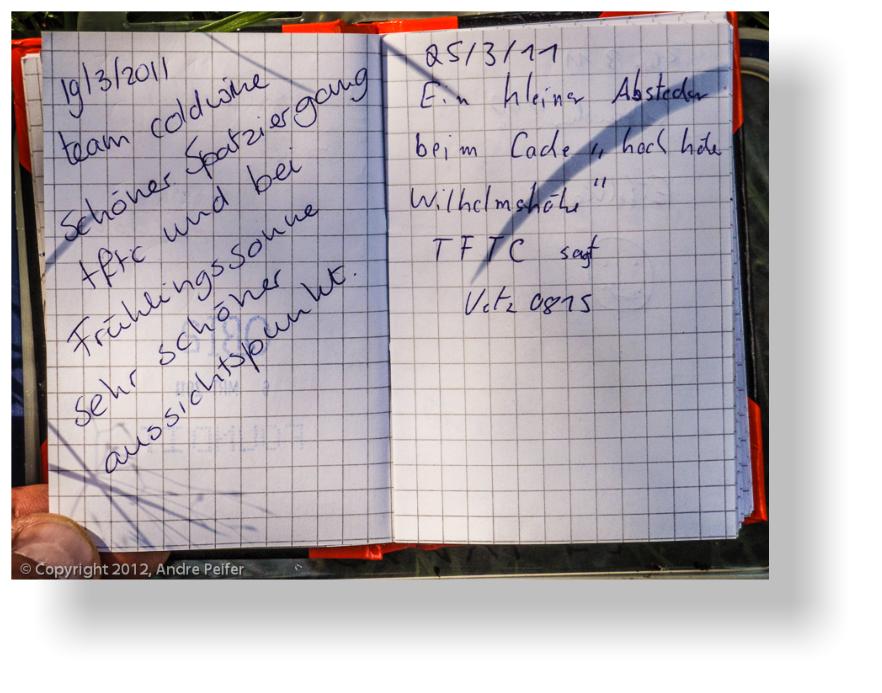 19/3/2011
team coldwine
Schöner Spatziergang
tftc und bei
Frühlingssonne
sehr schöner
aussichtspunkt.
25/3/11
Ein kleiner Abstecher
beim Cache „ hoch
Wilhelmshöhe "
TFTC sagt
0815
© Copyright 2012, Andre Peifer